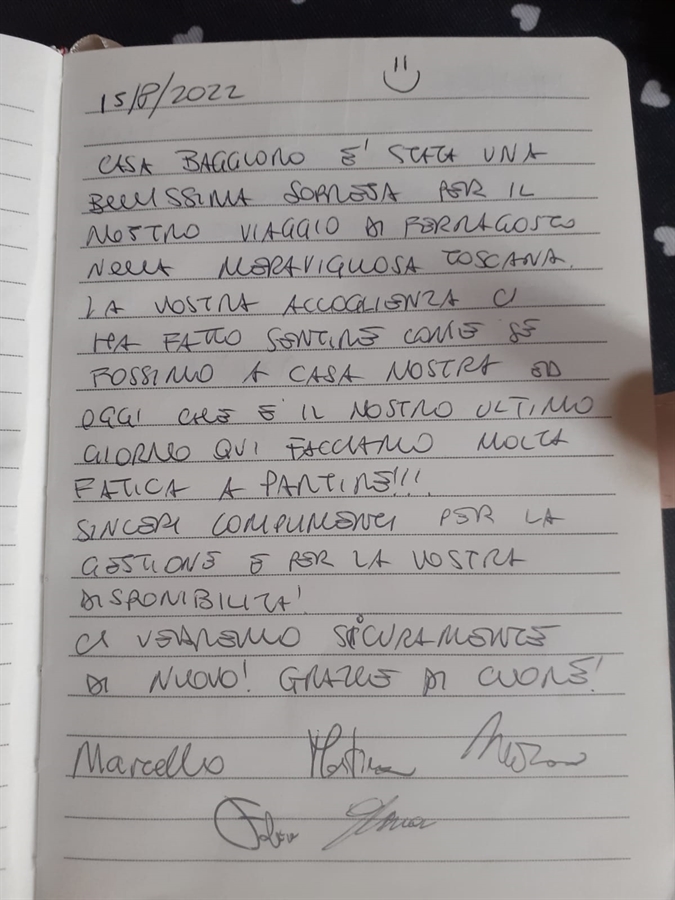 15/8/2022
CASA BAGGIORO E' STATA UNA
BELLISSIMA SORPRESA PER IL
NOSTRO VIAGGIO DI FERRAGOSTO
NELLA MERAVIGLIOSA TOSCANA.
LA VOSTRA ACCOGLIENZA CI
HA FATTO SENTIRE COME SE
FOSSIMO A CASA NOSTRA ED
OGGI CHE E' IL NOSTRO ULTIMO
GIORNO QUI FACCIAMO MOLTA
FATICA A PARTIRE!!!
SINCERI COMPLIMENTI PER LA
GESTIONE E PER LA VOSTRA
DISPONIBILITA'!
CI VEDREMO SICURAMENTE
DI NUOVO! GRAZIE DI CUORE!
Marcello Martina